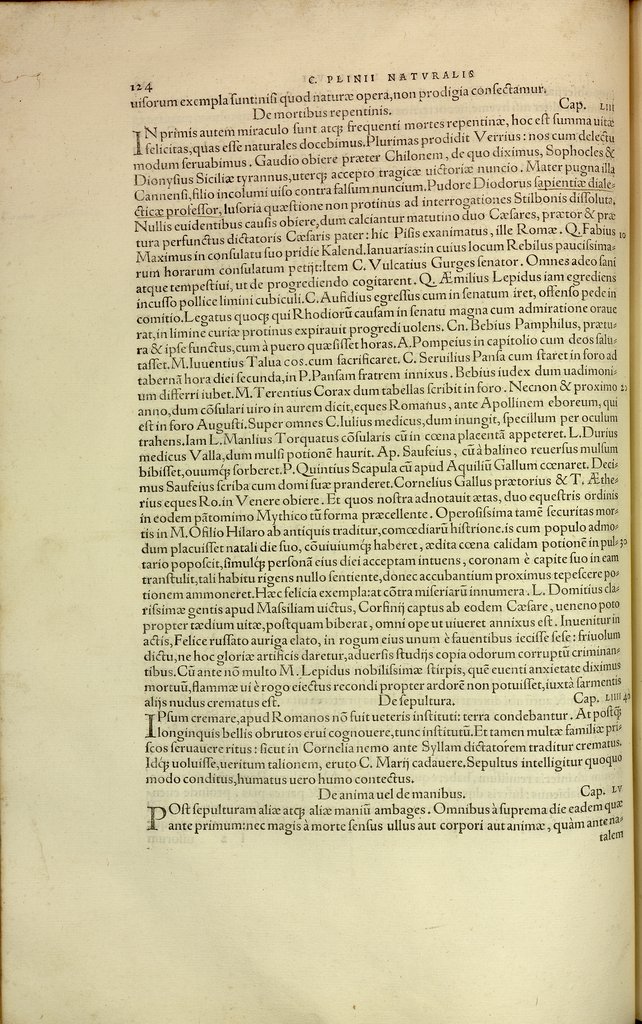 124
C. PLINII NATVRALIS
uisorum exempla sunt:nisi quod naturæ opera,non prodigia consectamur.
De mortibus repentinis. Cap. LIII
IN primis autem miraculo sunt atqꝫ frequenti mortes repentinæ, hoc est summa uitæ
felicitas,quas esse naturales docebimus.Plurimas prodidit Verrius: nos cum delectu
modum seruabimus. Gaudio obiere præter Chilonem, de quo diximus, Sophocles &
Dionysius Siciliæ tyrannus,uterqꝫ accepto tragicæ uictoriæ nuncio. Mater pugna illa
Cannensi,filio incolumi uiso contra falsum nuncium.Pudore Diodorus sapientiæ diale⸗
cticæ professor, lusoria quæstione non protinus ad interrogationes Stilbonis dissoluta,
Nullis euidentibus causis obiere,dum calciantur matutino duo Cæsares, prætor & præ
tura perfunctus dictatoris Cæsaris pater: hic Pisis exanimatus, ille Romæ. Q. Fabius 10
Maximus in consulatu suo pridie Kalend.Ianuarias:in cuius locum Rebilus paucissima⸗
rum horarum consulatum petijt:Item C. Vulcatius Gurges senator. Omnes adeo sani
atque tempestiui, ut de progrediendo cogitarent. Q. Æmilius Lepidus iam egrediens
incusso pollice limini cubiculi.C.Aufidius egressus cum in senatum iret, offenso pede in
comitio.Legatus quoqꝫ qui Rhodiorũ causam in senatu magna cum admiratione oraue
rat,in limine curiæ protinus expirauit progredi uolens. Cn. Bebius Pamphilus, prætu⸗
ra & ipse functus,cum à puero quæsisset horas.A.Pompeius in capitolio cum deos salu⸗
tasset.M.Iuuentius Talua cos.cum sacrificaret. C. Seruilius Pansa cum staret in foro ad
tabernã hora diei secunda,in P.Pansam fratrem innixus. Bebius iudex dum uadimoni⸗
um differri iubet.M.Terentius Corax dum tabellas scribit in foro. Necnon & proximo 20
anno,dum cõsulari uiro in aurem dicit,eques Romanus, ante Apollinem eboreum, qui
est in foro Augusti.Super omnes C.Iulius medicus,dum inungit, specillum per oculum
trahens.Iam L.Manlius Torquatus cõsularis cũ in cœna placentã appeteret. L.Durius
medicus Valla,dum mulsi potionẽ haurit. Ap. Saufeius, cũ à balineo reuersus mulsum
bibisset,ouumqꝫ sorberet.P.Quintius Scapula cũ apud Aquiliũ Gallum cœnaret. Deci⸗
mus Saufeius scriba cum domi suæ pranderet.Cornelius Gallus prætorius & T. Æthe⸗
rius eques Ro.in Venere obiere. Et quos nostra adnotauit ætas, duo equestris ordinis
in eodem pãtomimo Mythico tũ forma præcellente. Operosissima tamẽ securitas mor⸗
tis in M.Ofilio Hilaro ab antiquis traditur,comœdiarũ histrione.is cum populo admo⸗
dum placuisset natali die suo, cõuiuiumqꝫ haberet, ædita cœna calidam potionẽ in pul⸗ 30
tario poposcit,simulqꝫ personã eius diei acceptam intuens, coronam è capite suo in eam
transtulit,tali habitu rigens nullo sentiente,donec accubantium proximus tepescere po⸗
tionem ammoneret.Hæc felicia exempla:at cõtra miseriarũ innumera. L. Domitius cla⸗
rissimæ gentis apud Massiliam uictus, Corfinij captus ab eodem Cæsare, ueneno poto
propter tædium uitæ,postquam biberat, omni ope ut uiueret annixus est. Inuenitur in
actis,Felice russato auriga elato, in rogum eius unum è fauentibus iecisse sese: friuolum
dictu,ne hoc gloriæ artificis daretur,aduersis studijs copia odorum corruptũ criminan⸗
tibus.Cũ ante nõ multo M. Lepidus nobilissimæ stirpis, quẽ euenti anxietate diximus
mortuũ,flammæ ui è rogo eiectus recondi propter ardorẽ non potuisset,iuxtà sarmentis
alijs nudus crematus est. De sepultura. Cap. LIIII 40
IPsum cremare,apud Romanos nõ fuit ueteris instituti: terra condebantur. At postqꝫ̃
longinquis bellis obrutos erui cognouere,tunc institutũ.Et tamen multæ familiæ pri⸗
scos seruauere ritus: sicut in Cornelia nemo ante Syllam dictatorem traditur crematus.
Idqꝫ uoluisse,ueritum talionem, eruto C. Marij cadauere.Sepultus intelligitur quoquo
modo conditus,humatus uero humo contectus.
De anima uel de manibus. Cap. LV
POst sepulturam aliæ atqꝫ aliæ maniũ ambages. Omnibus à suprema die eadem quæ
ante primum:nec magis à morte sensus ullus aut corpori aut animæ, quàm ante na⸗
talem